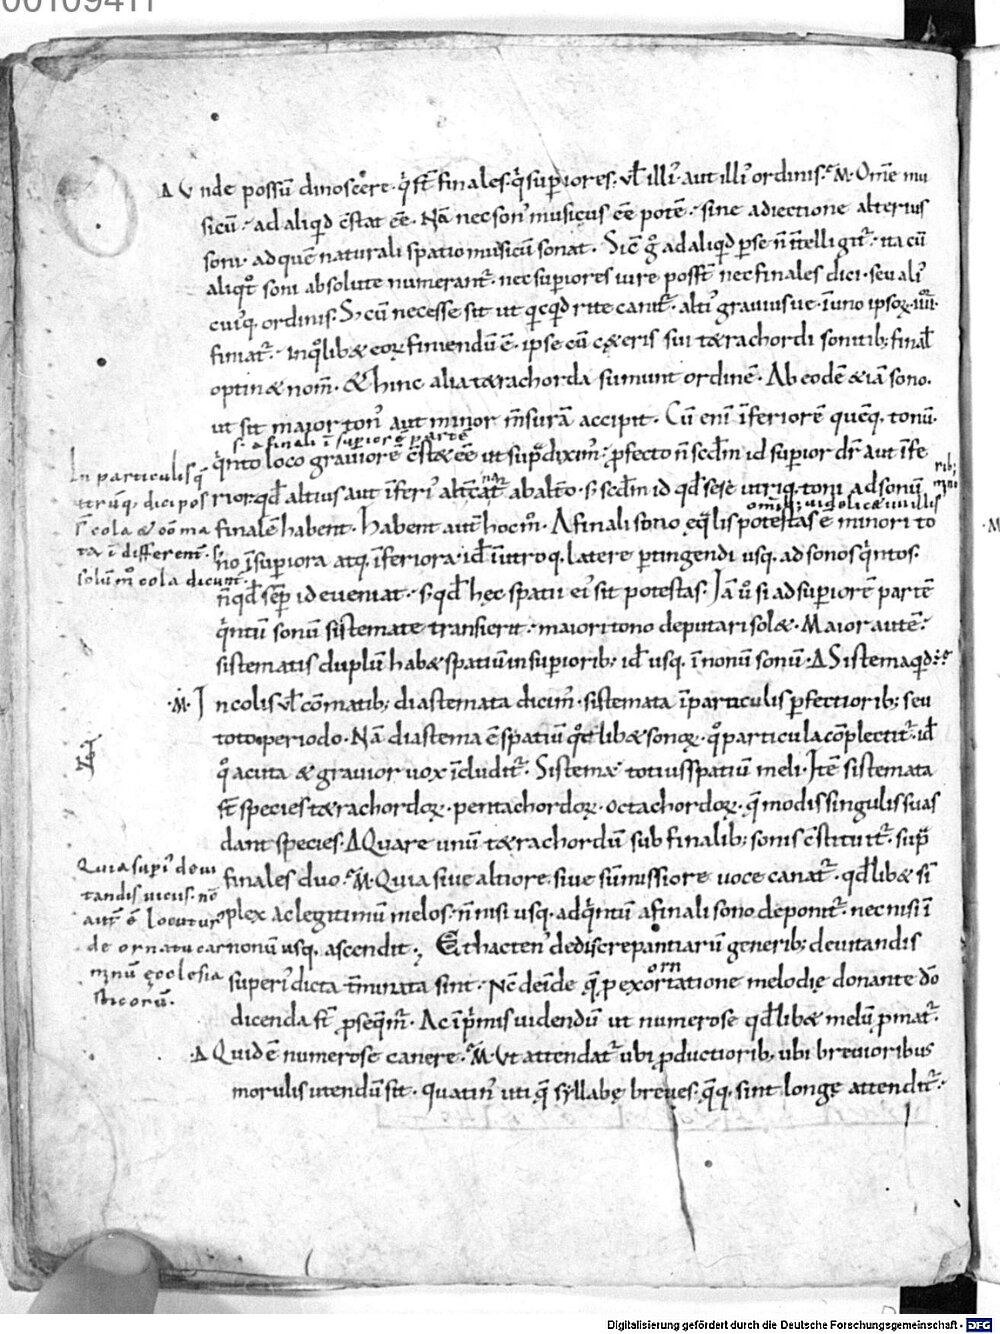 00109411
Δ Unde possū dinoscere · q̄ s̄t finales · q̄ superiores · ut̄ illi᾽ aut illi᾽ ordinis · M · Om̄e mu
sicū · ad aliqd c̄stat ēe · Nā nec son᾽ musicus ēe potē · sine adiectione alterius
soni · ad quē naturali spatio musicū sonat · Sic̄ g̊ ad aliqd p se n̄ intelligit᷑ · ita cū
aliqt̊ soni absolute numerant᷑ · nec supiores iure poss̄t nec finales dici · seu ali᾽
cui᾽q, ordinis · S; cū necesse sit ut qcqd rite canit᷑ · alti᾽ graviusue · ī uno ipsoꝝ · iiii ·
finiat᷑ · inq̊libæ eoꝝ finiendū ē · ipse cū cæteris sui tætrachordi sonitib; final̄
optinæ nom̄ · & hinc alia tætrachorda sumunt ordinē · Ab eodē & iā sono ·
ut sit maior ton᾽ aut minor m̄surā accipit · Cū eni īferiorē quēq, tonū ·
s · a finali ī supiore parte
q̄nto loco graviorē c̄stæ ēe ut sup̄ dixim᾽ · pfecto n̄ sc̄dm id supior dr̄ aut īfe
rior · qd̄ altius aut īferi᾽ alt̄cat᷑ ab alt̄o · s; sc̄dm id qd̄ sese utriq, toni ad sonū
finalē habent · Habent aut̄ hoc m̄ · A finali sono eq̄lis potestas ē minori to
no ī supiora atq, īferiora · id̄ ī utroq, latere ptingendi usq, ad sonos q̄ntos ·
n̄ qd̄ semp id eveniat · s; qd̄ hęc spatii ei᾽ sit potestas · Iā ū si ad supiorē partē
q̄ntū sonū sistemate transierit · maiori tono deputari solæ · Maior autē
sistematis duplū habæ spatiū in supiorib; id̄ usq, ī nonū sonū · Δ Sistema qd ē
· M · In colis ut̄ cōmatib; diastemata dicim᾽ · sistemata ī particulis pfectiorib; seu
toto periodo · Nā diastema ē spatiū q̊tlibæ sonoꝝ · q̊ particula cōplectit᷑ · id̄
q̊ acuta & gravior vox īcludit᷑ · Sistema totius spatiū meli · Itē sistemata
s̄t species tætrachordoꝝ · pentachordoꝝ · octachordoꝝ · q̄ modis singulis suas
dant species · Δ Quare unū tætrachordū sub finalib; sonis c̄stituit᷑ · sup̄
finales duo · M · Quia siue altiore siue sūmissiore voce canat᷑ · qd̄libæ si᷑
plex ac legitimū melos · n̄ nisi usq, ad q̄ntū a finali sono deponit᷑ · nec nisi ī
nonū usq, ascendit · Et hacten᾽ de discrepantiarū generib; devitandis
superi᾽ dicta t̄minata sint · Nc̄ deīde q̄ p exortatione melodię donante dō
orn
dicenda s̄t pseqm̄᷑ · Ac īpmis videndū ut numerose qd̄libæ melū pmat᷑ ·
· Δ Quid ē numerose canere · M · Ut attendat᷑ ubi pductiorib, ubi brevioribus
morulis utendū sit · quatin᾽ uti q̄ syllabę breves · q̄q, sint longę attendit᷑ ·
In particulis q̄
utrūq, dici pos
s̄t cola & cōma
ta ī different᷑ · s;
solūm᷑ cola dicunt᷑
Quia supi᾽ devi
tandis viciis · n̄c
aut̄ ē locutur᾽
de ornatu car
minū ęcclesia
sticorū ·
Digitalisierung gefördert durch die Deutsche Forschungsgemeinschaft - DFG